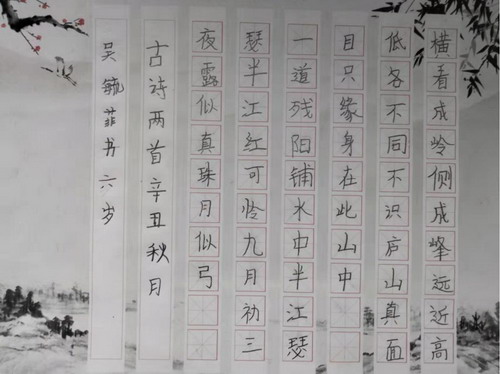 横看成岭侧成峰远近高
低各不同不识庐山真面
目只缘身在此山中
一道残阳铺水中半江瑟
瑟半江红可怜九月初三
夜露似真珠月似弓
古诗两首辛丑秋月
吴毓菲书六岁